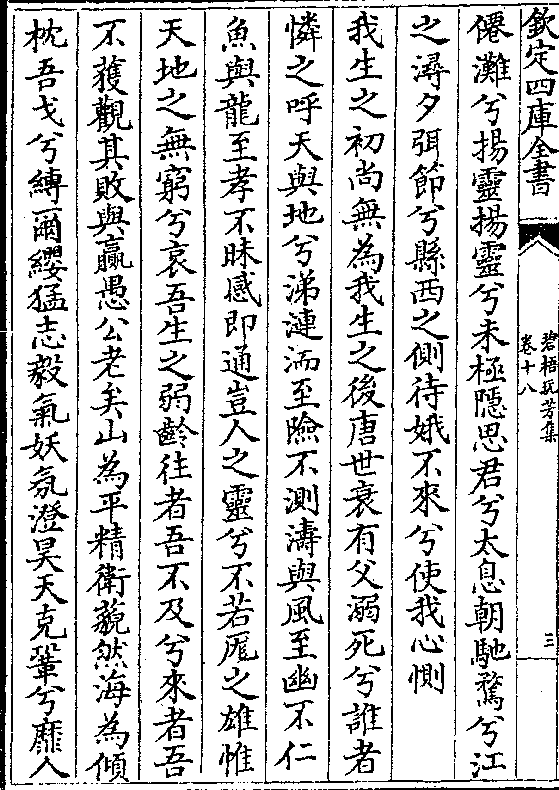 欽定四庫全書
碧梧玩芳集
卷十八
三
僊灘兮揚靈揚靈兮未極隱思君兮太息朝馳騖兮江
之潯夕弭節兮縣西之側待娥不來兮使我心惻
我生之初尚無為我生之後唐世衰有父溺死兮誰者
憐之呼天與地兮涕漣洏至險不測濤與風至幽不仁
魚與龍至孝不昧感即通豈人之靈兮不若厖之雄惟
天地之無窮兮哀吾生之弱齡往者吾不及兮來者吾
不獲觀其敗與贏愚公老矣山為平精衛藐然海為傾
枕吾戈兮縛爾纓猛志毅氣妖氛澄昊天克鞏兮靡人